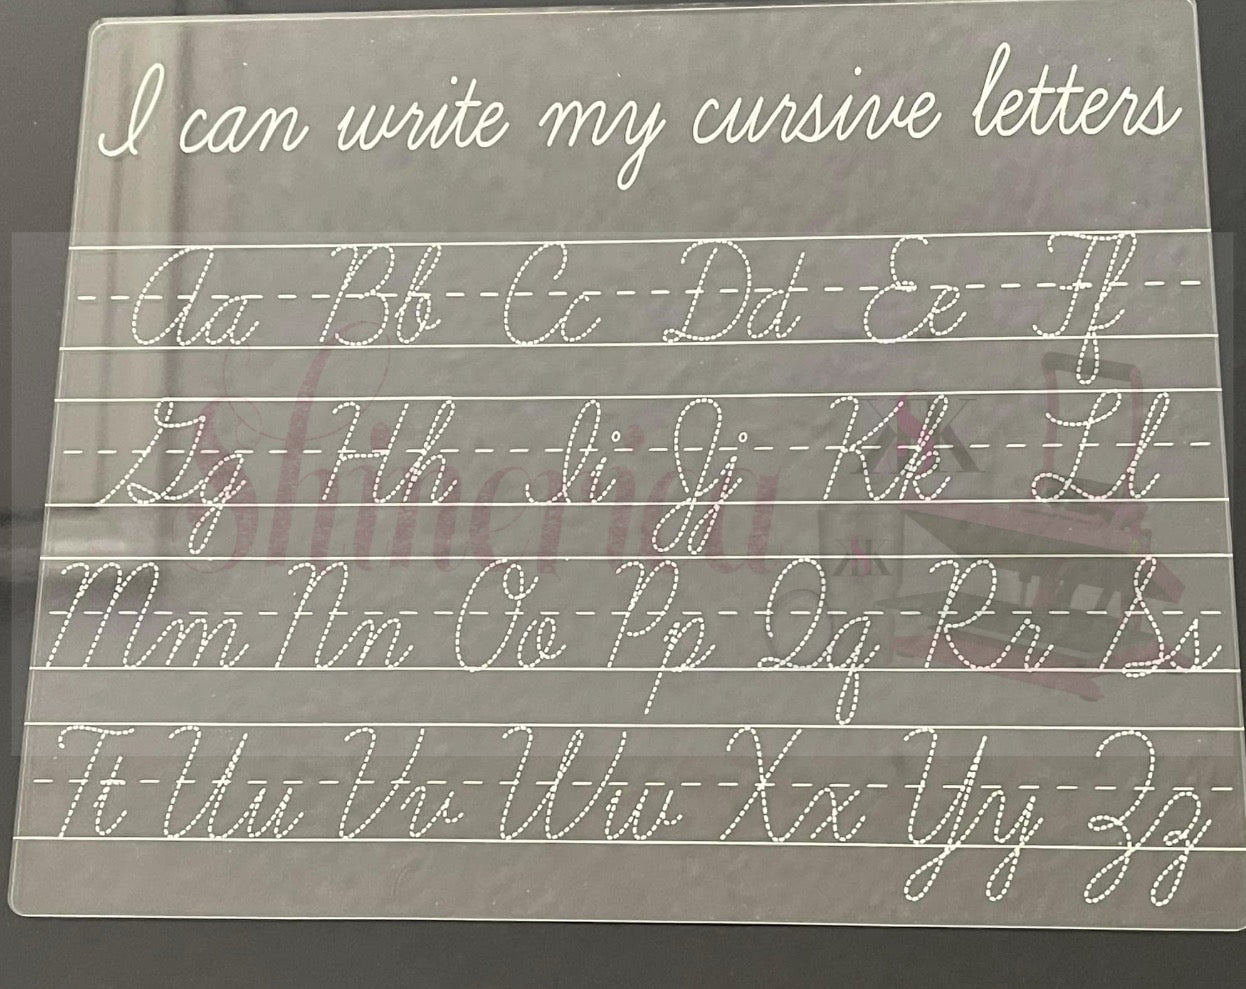 I can write my cursive letters
Aa Bb Cc Dd Ee Ff
Gg Hh Ii Jj Kk Ll
Shinerica
KK
KK
Mm Nn Oo Pp Qq Rr Ss
Tt Uu Vv Ww Xx Yy Zz